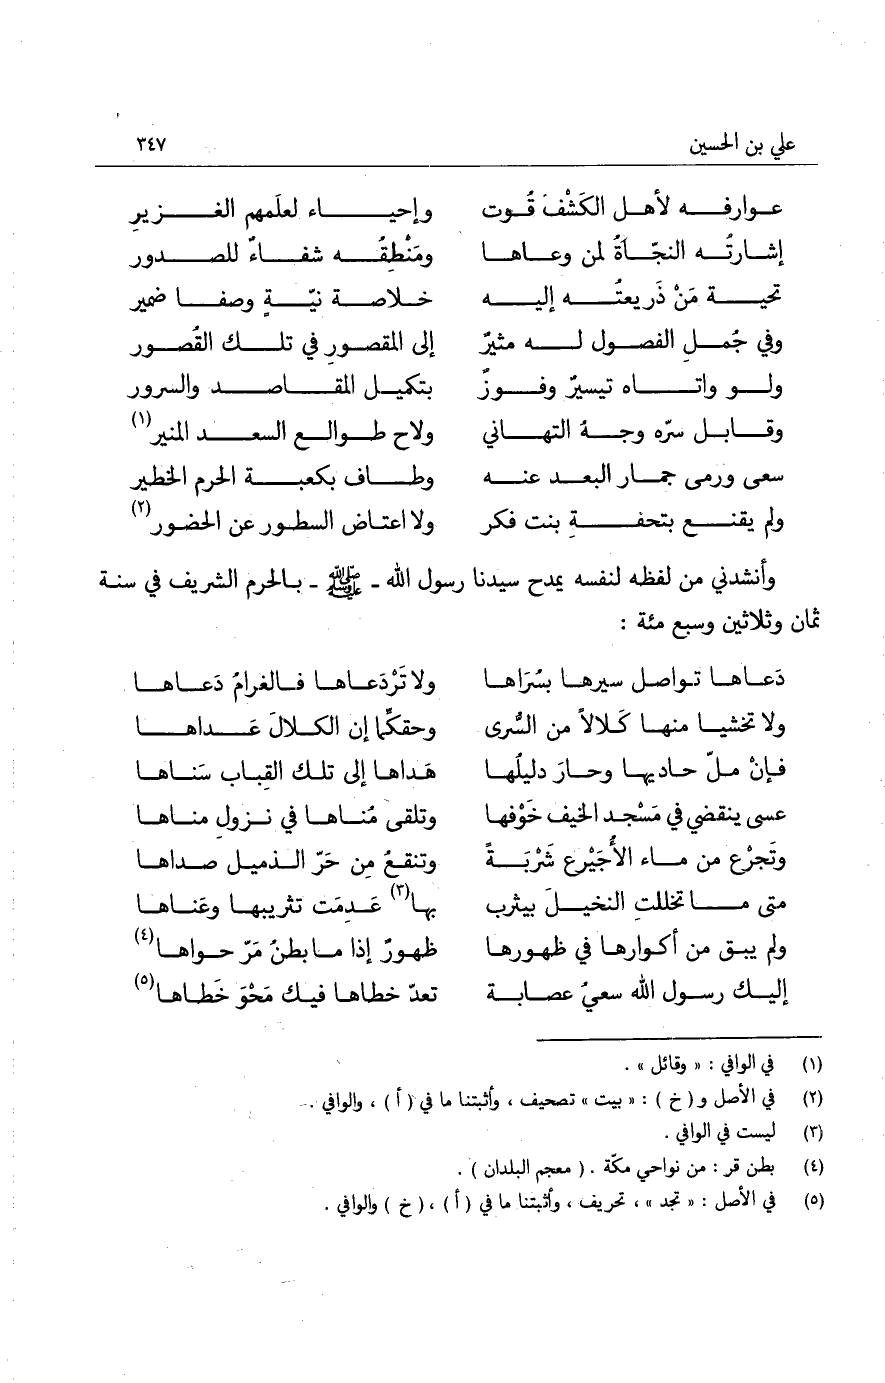 علي بن الحسين ٣٤٧
عوارفه لأهل الكَشْفَ قُوت وإحياء لعلَمهم الغزيرِ
إشارتُه النجّاةُ لمن وعاها ومَنْطِقُه شفاءٌ للصدور
تحية مَنْ ذَريعتُه إليه خلاصة نيّةٍ وصفا ضمير
وفي جُملِ الفصول له مثيرٌ إلى المقصور في تلك القُصور
ولو واتاه تيسيرٌ وفوزٌ بتكيل المقاصد والسرور
وقابل سرّه وجهُ التهاني ولاح طوالع السعد المنير(١)
سعى ورمى جمار البعد عنه وطاف بكعبة الحرم الخطير
ولم يقنع بتحفةِ بنت فكر ولا اعتاض السطور عن الحضور(٢)
وأنشدني من لفظه لنفسه يمدح سيدنا رسول الله ـ ﷺ ـ بالحرم الشريف في سنة
ثمان وثلاثين وسبع مئة :
دَعاها تواصل سيرها بسُرَاها ولا تَرْدَعاها فالغرامُ دَعاها
ولا تخشيا منها كَلالاً من السُّرى وحقكما إن الكلالَ عَداها
فإنْ ملّ حاديها وحارَ دليلُها هَداها إلى تلك القِباب سَناها
عسى ينقضي في مَسْجد الخيف خَوْفها وتلقى مُناها في نزول مناها
وتَجرْع من ماء الأُجَيْرع شَرْبَةً وتنقعُ مِن حَرّ الذميل صداها
متى ما تخللت النخيلَ بيثرب بها(٣) عَدِمَت تثريبها وعَناها
ولم يبق من أكوارها في ظهورها ظهورٌ إذا ما بطنُ مَرّ حواها(٤)
إليك رسول الله سعيُ عصابة تعدّ خطاها فيك مَحْوَ خَطاها(٥)
(١) في الوافي : « وقائل » .
(٢) في الأصل و( خ ) : « بيت » تصحيف ، وأثبتنا ما في ( أ ) ، والوافي .
(٣) ليست في الوافي .
(٤) بطن قر : من نواحي مكّة . ( معجم البلدان ) .
(٥) في الأصل : « تجد » ، تحريف ، وأثبتنا ما في ( أ ) ، ( خ ) والوافي .